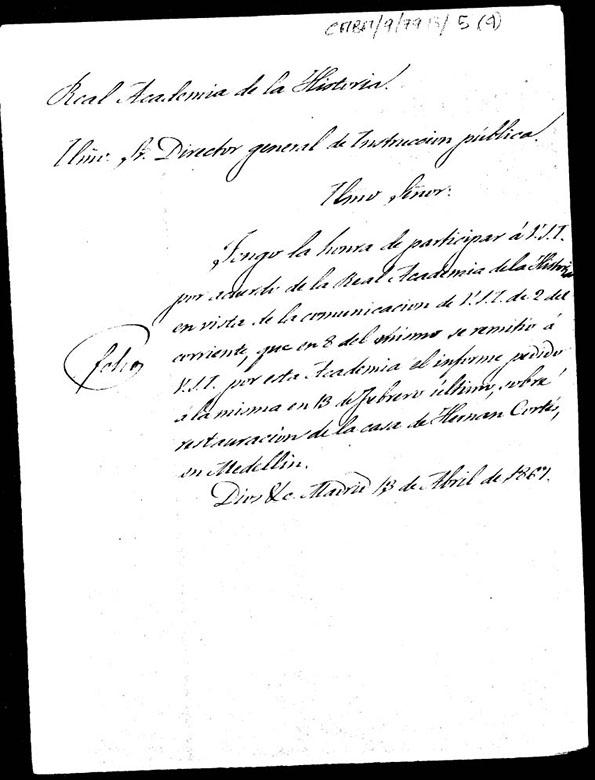 CABA/9/7978/5(4)
Real Academia de la Historia.
Ilmo. Sr. Director general de Instruccion pública.
Ilmo Señor:
Tengo la honra de participar á V.S.I.
por acuerdo de la Real Academia de la Historia
en vista de la comunicacion de V.S.I. de 2 del
corriente, que en 8 del mismo se remitió á
V.S.I. por esta Academia el informe pedido
á la misma en 13 de Febrero último, sobre
restauracion de la casa de Hernan Cortés,
en Medellin.
Dios &c. Madrid 13 de Abril de 1867.